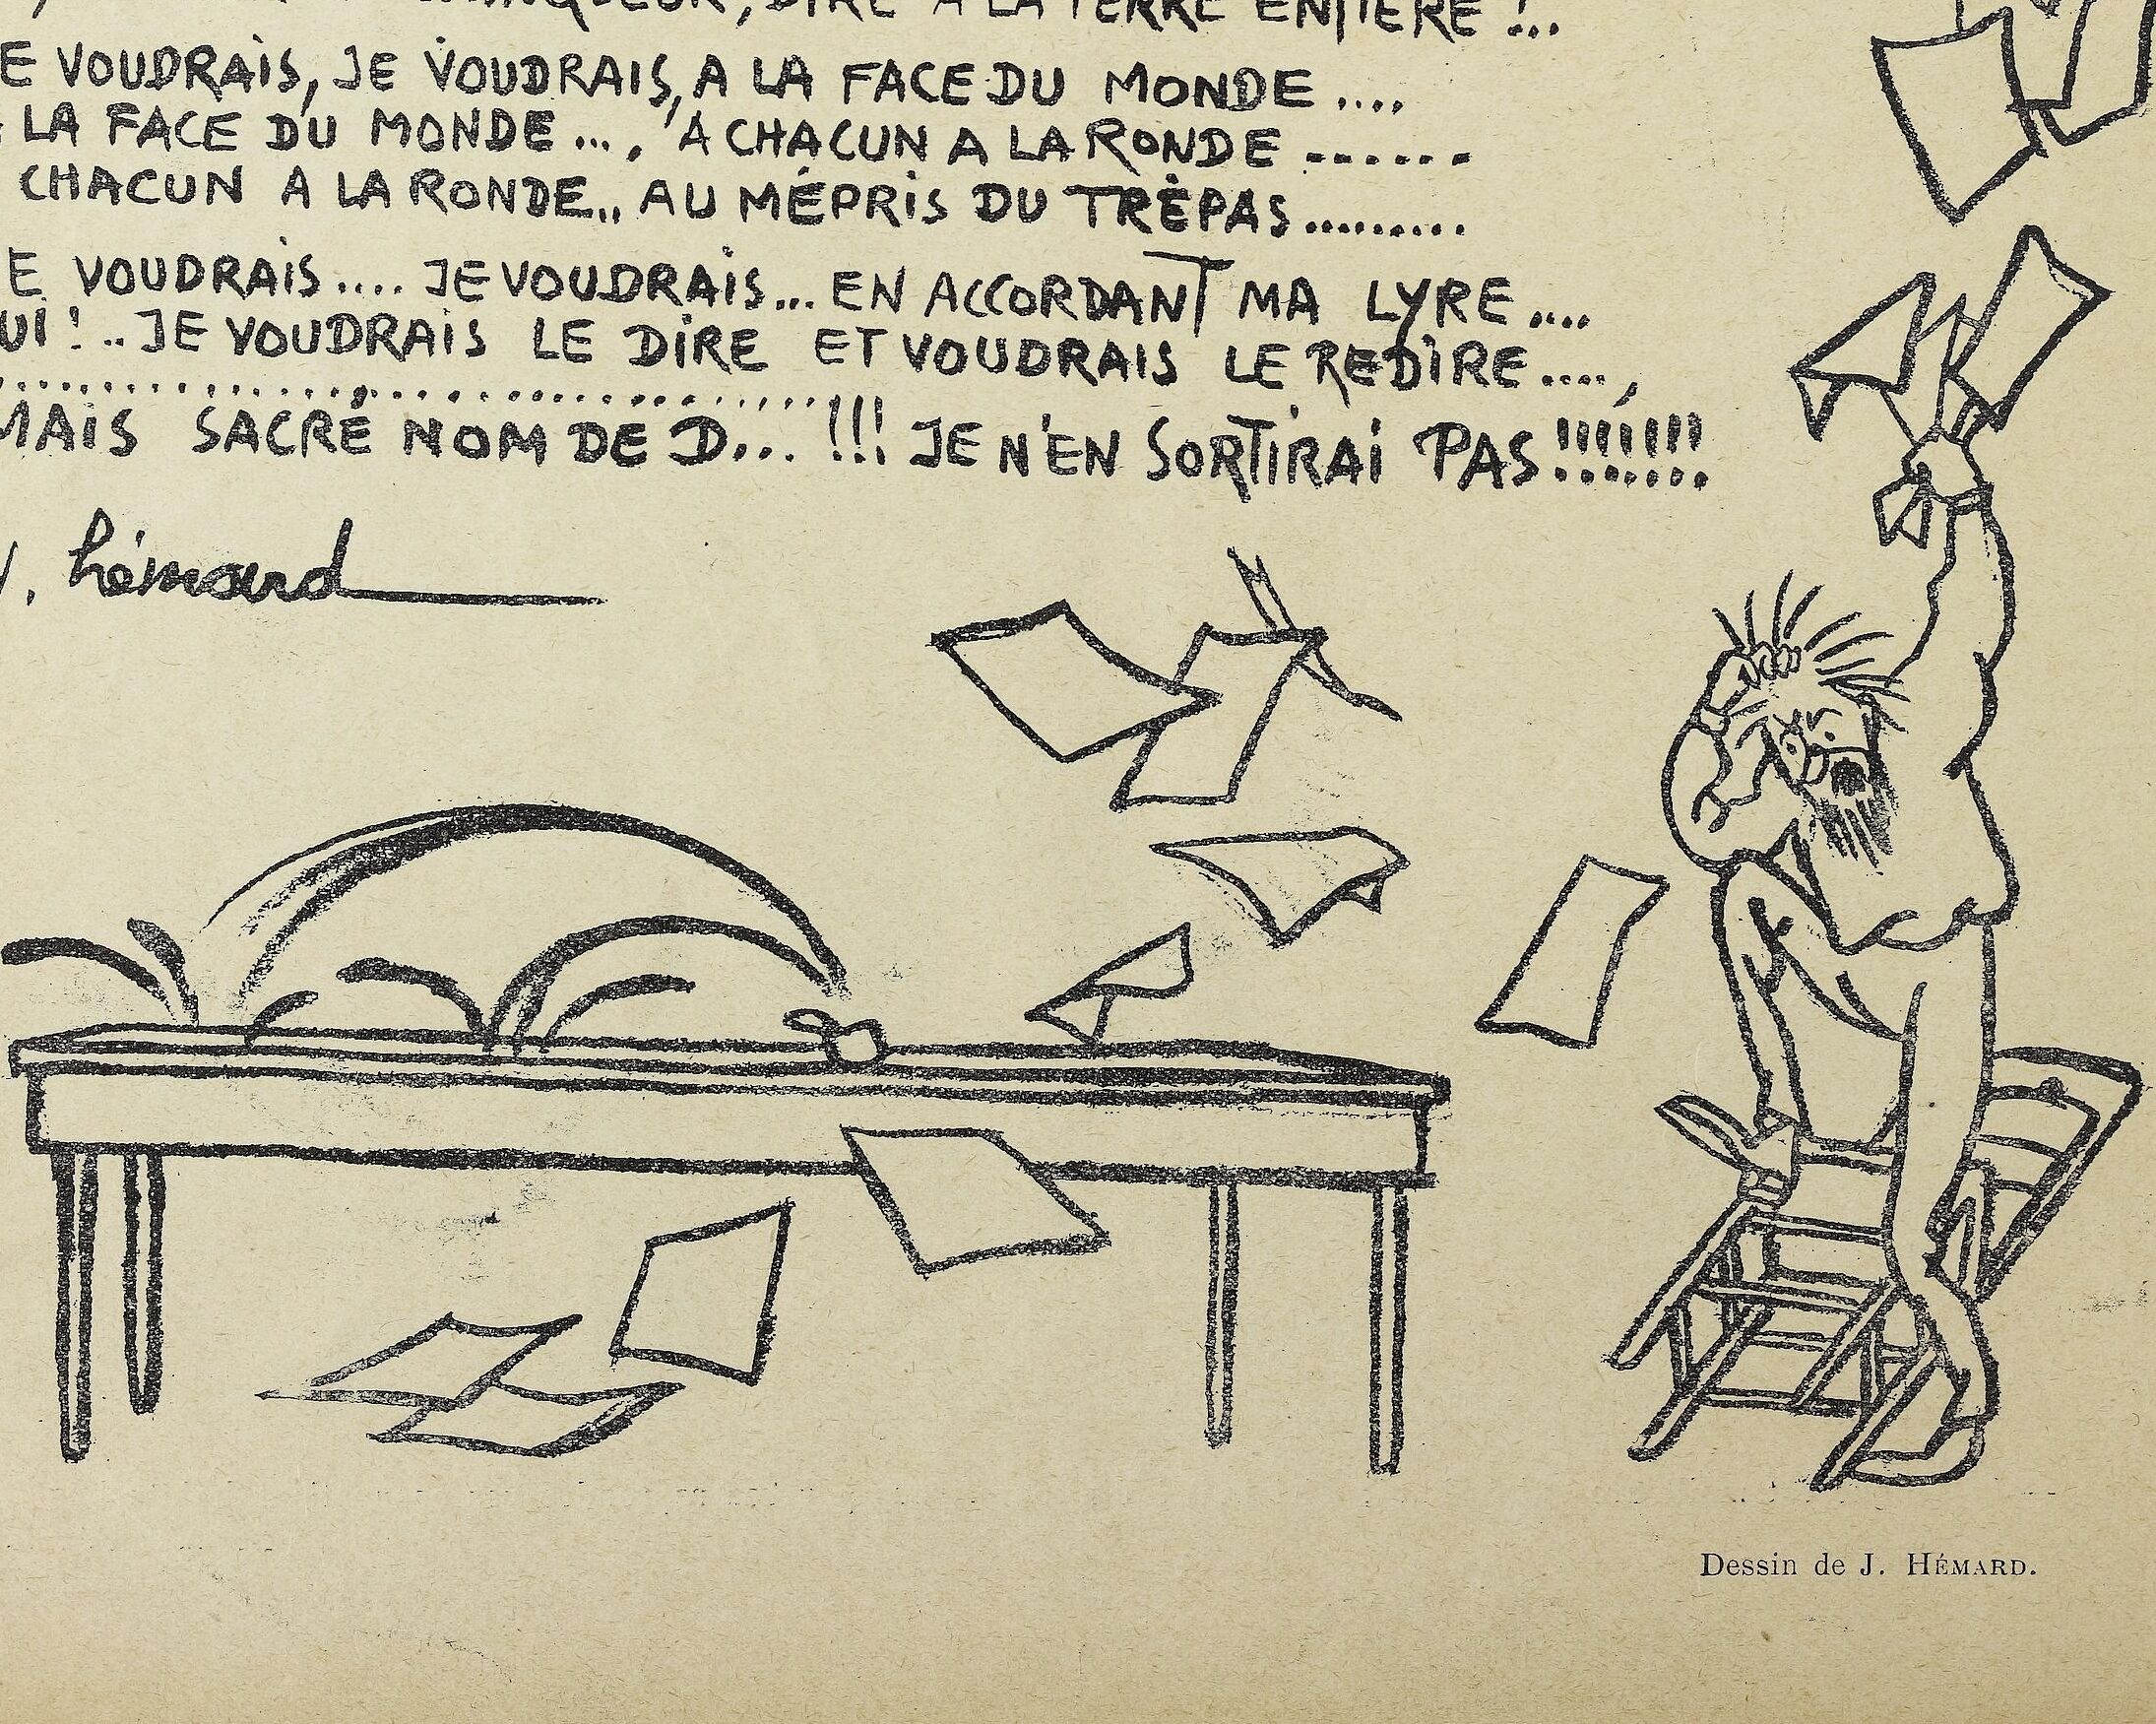 VAINQUEUR, DIRE A LA TERRE ENTIERE !...
E VOUDRAIS, JE VOUDRAIS, A LA FACE DU MONDE ....
LA FACE DU MONDE ..., A CHACUN A LA RONDE ......
CHACUN A LA RONDE.. AU MÉPRIS DU TRÉPAS.........
E VOUDRAIS.... JE VOUDRAIS... EN ACCORDANT MA LYRE....
UI !.. JE VOUDRAIS LE DIRE ET VOUDRAIS LE REDIRE....,
MAIS SACRÉ NOM DE D... !!! JE N'EN SORTIRAI PAS !!!!!!!
. hémard
Dessin de J. HÉMARD.